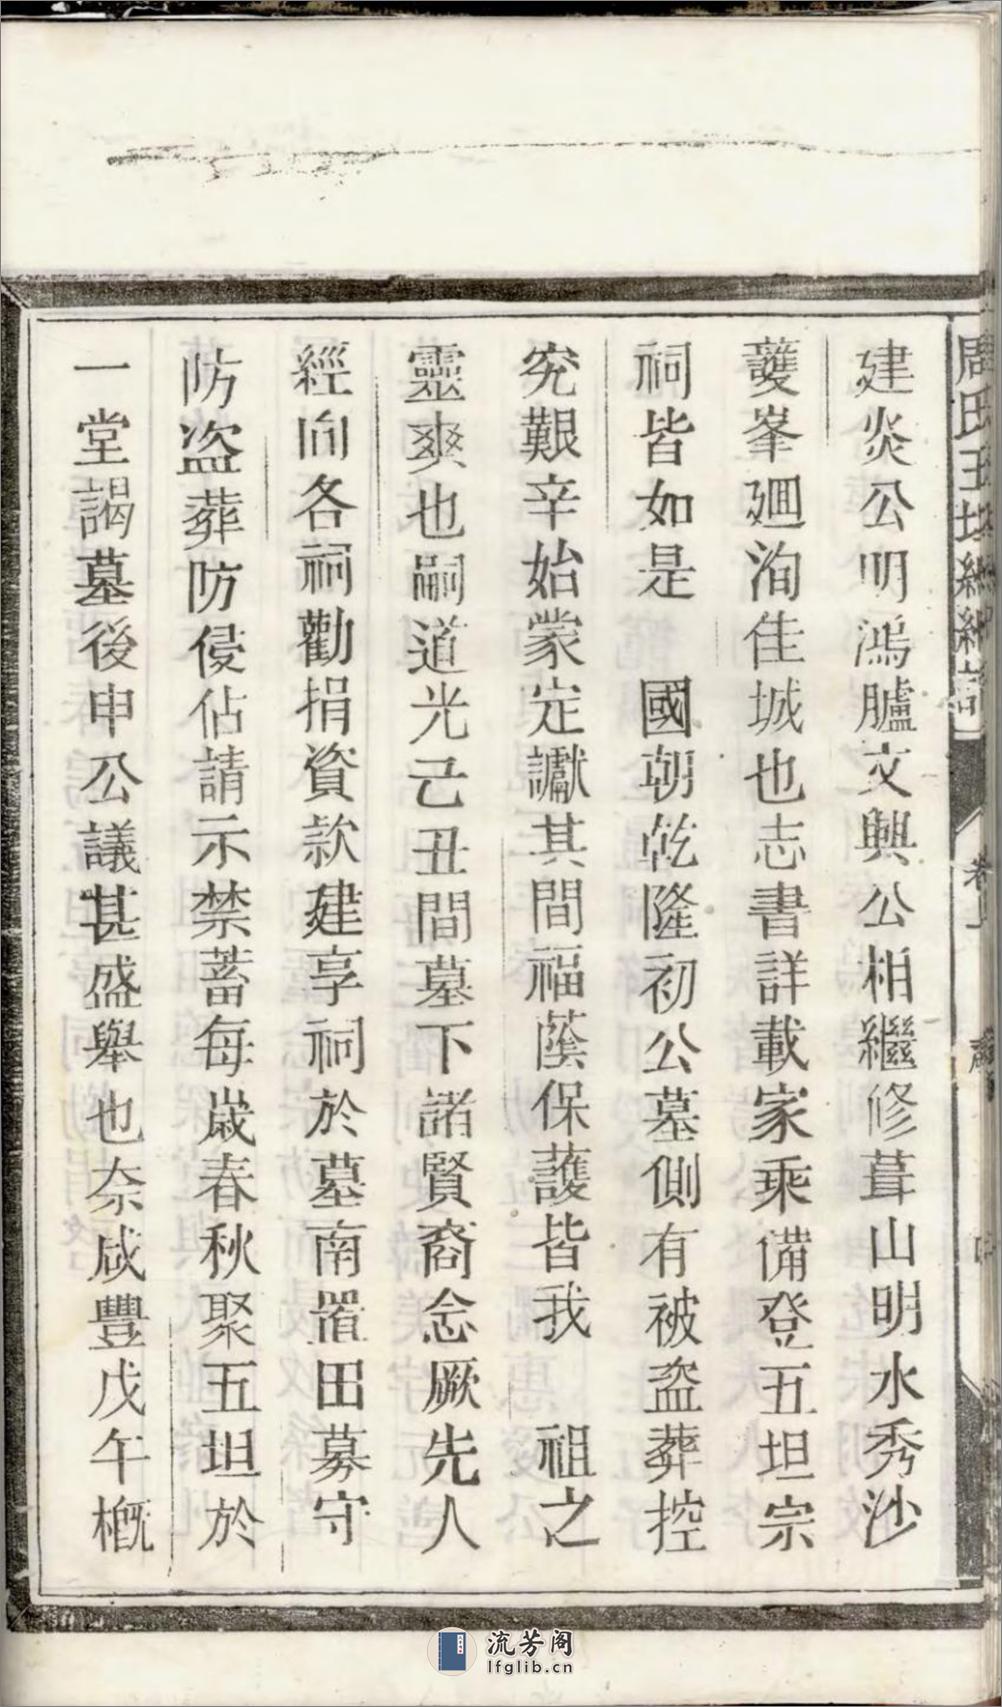 建炎公明鴻臚文興公相繼修葺山明水秀沙
蠖峯廻洵佳城也志書詳載家乘備登五坦宗
祠皆如是　國朝乾隆初公墓側有被盜葬控
究艱辛始蒙定讞其間福蔭保護皆我　祖之
靈爽也嗣道光己丑間墓下諸賢裔念厥先人
經向各祠勸捐資款建享祠於墓南置田募守
防盜葬防侵佔請示禁蓄每歲春秋聚五坦於
一堂謁墓後申公議甚盛舉也奈咸豐戊午概
流芳阁
lfglib.cn